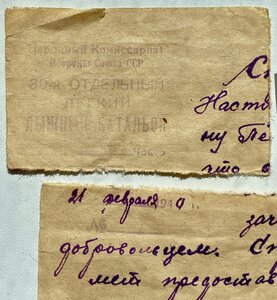 Народный Комиссариат
Обороны Союза ССР
89-й ОТДЕЛЬНЫЙ
ЛЕГКИЙ
ЛЫЖНЫЙ БАТАЛЬОН
Часть
Сп
Насто
ну Пе
что
21 февраля 194 г.
№
зач
добровольцем. Сп
мет предостав